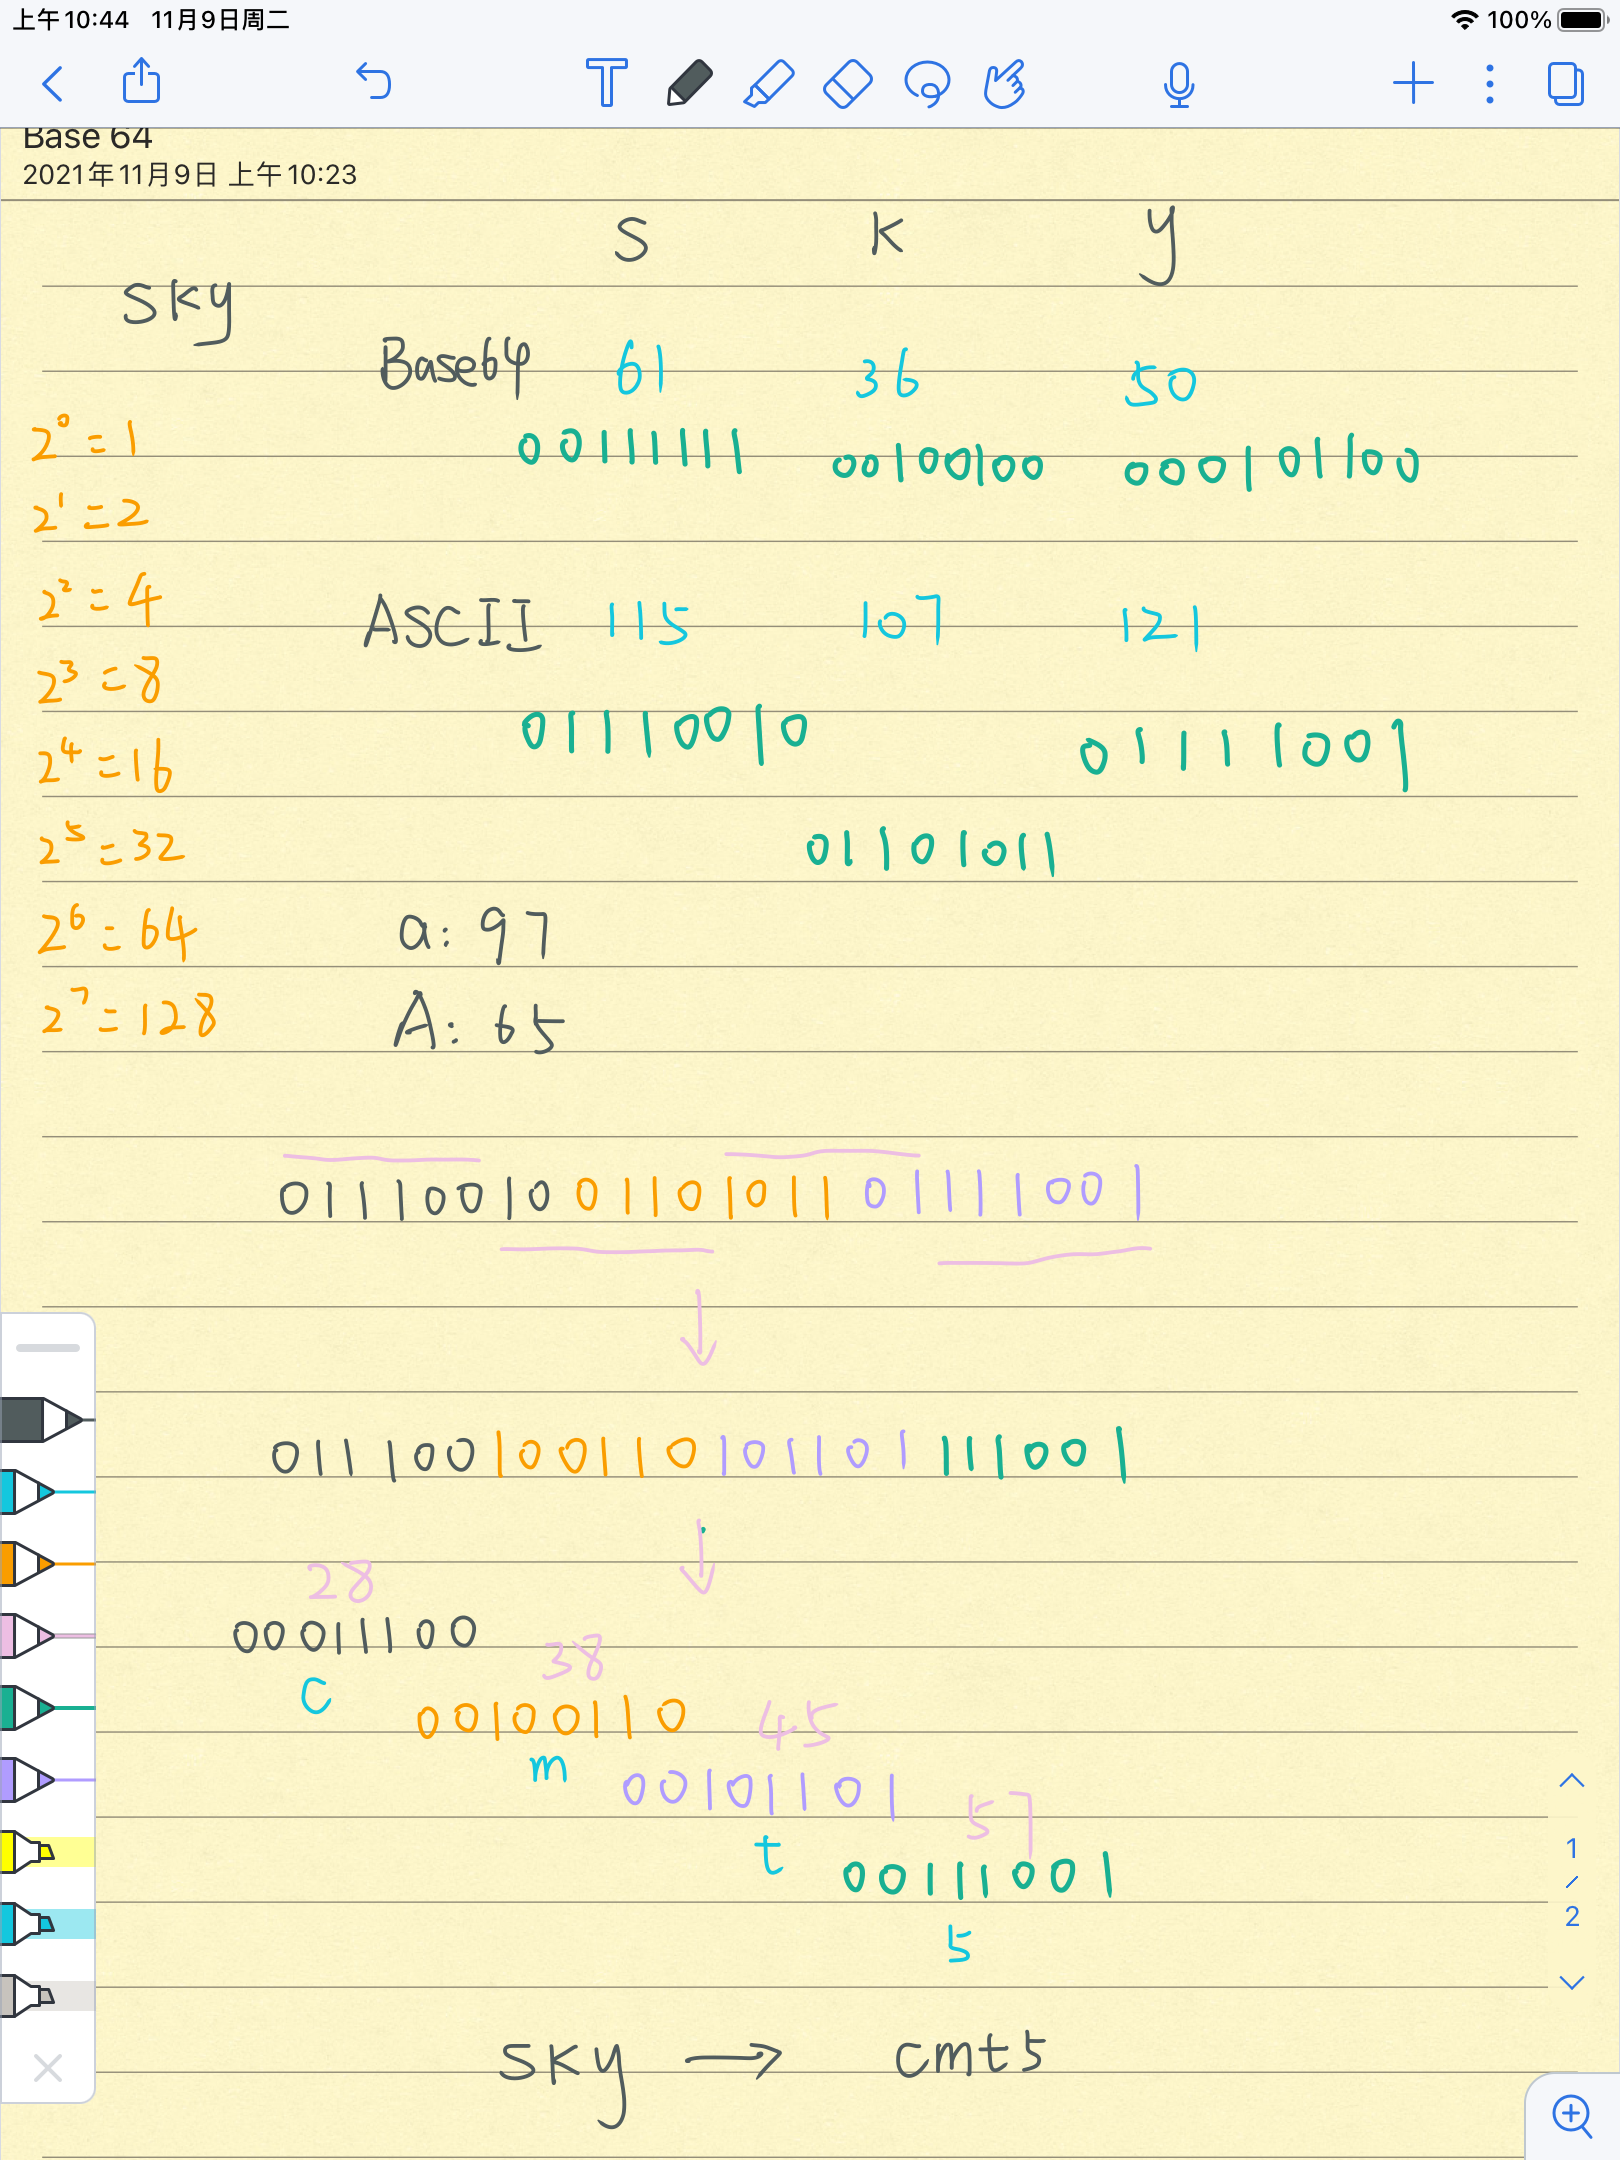 上午10:44 11月9日周二 100%
Base 64
2021年11月9日 上午10:23
S K y
sky
Base64 61 36 50
2⁰=1 00111111 00100100 000101100
2¹=2
2²=4 ASCII 115 107 121
2³=8
2⁴=16 01110010 01111001
2⁵=32 01101011
2⁶=64 a: 97
2⁷=128 A: 65
011100100110101101111001
011100100110101101111001
28
00011100
38
c
00100110
45
m
00101101
57
t
00111001
5
sky → cmt5
1
/
2